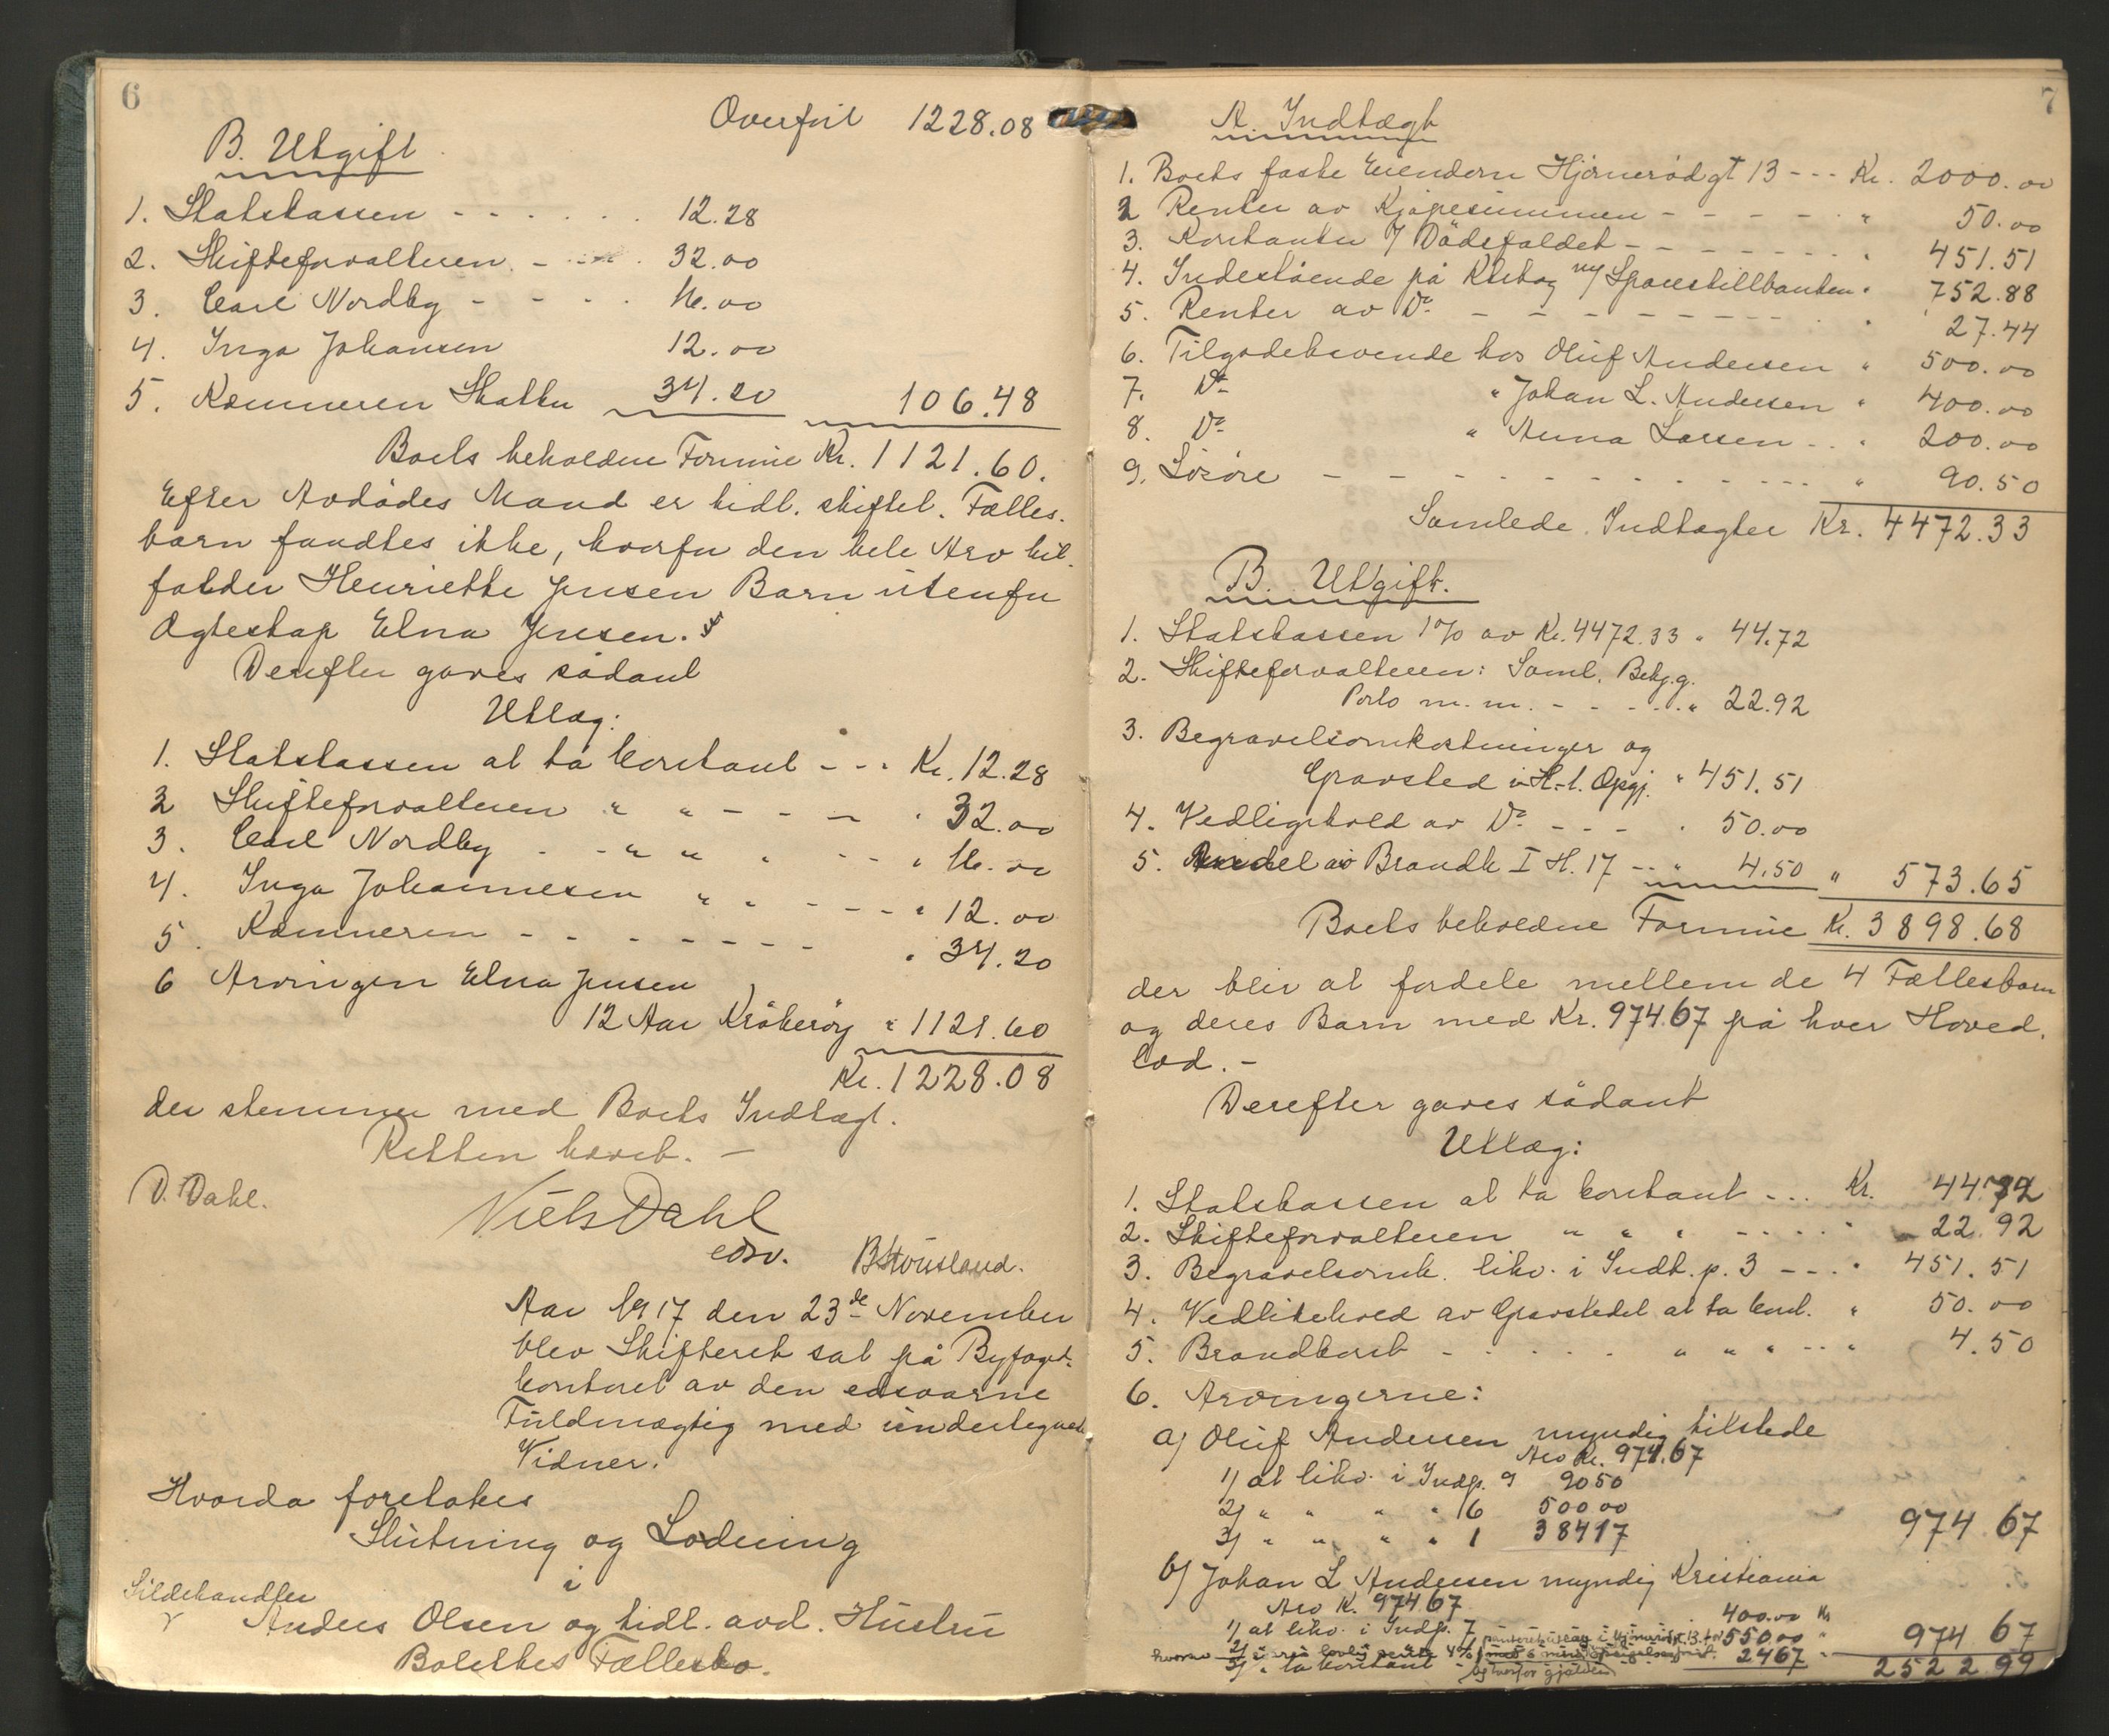 6
Overført 1228.08
B. Utgift
1. Statskassen - - - - - - 12.28
2. Skifteforvalteren - - - - 32.00
3. Carl Nordby - - - - 16.00
4. Inga Johansen 12.00
5. Kæmneren Skatter 34.20 106.48
Boets beholdne Formue Kr. 1121.60.
Efter Avdødes Mand er tidl. skiftet. Fælles-
barn fandtes ikke, hvorfor den hele Arv til-
falder Henriette Jensen Barn utenfor
Ægteskap Elna Jensen.
Derefter gaves sådant
Utlæg:
1. Statskassen at ta kontant - - - Kr. 12.28
2 Skifteforvalteren " " - - - " 32.00
3. Carl Nordby - - " " " - - " 16.00
4. Inga Johannesen " " - - - " 12.00
5. Kæmneren - - - - - - - " 34.20
6 Arvingen Elna Jensen
12 Aar Kråkerøy " 1121.60
Kr. 1228.08
der stemmer med Boets Indtægt.
Retten hævet. -
D. Dahl.
Niels Dahl
edsv. B Stousland.
Aar 1917 den 23de November
blev Skifteret sat på Byfogd-
kontoret av den edsvorne
Fuldmægtig med undertegnede
Vidner.
Hvorda foretokes
Slutning og Lodning
i
Sildehandler
Anders Olsen og tidl. avd. Hustru
Bolettes Fællesbo.
7
A. Indtægt
1. Boets faste Eiendom Hjørnerødgt 13 - - - Kr. 2000.00
2 Renter av Kjøpesummen - - - - - " 50.00
3. Kontanter v/ Dødsfaldet - - - - - - - " 451.51
4. Indestående på Kstbog m/ Spareskillbanken " 752.88
5. Renter av Do - - - - - - - - - " 27.44
6. Tilgodehavende hos Oluf Andersen " 500.00
7. Do " Johan L. Andersen " 400.00
8. Do " Anna Larsen - - " 200.00
9. Løsøre - - - - - - - - - - - " 90.50
Samlede Indtægter Kr. 4472.33
B. Utgift.
1. Statskassen 1% av Kr. 4472.33 " 44.72
2. Skifteforvalteren: Saml. Bekj.g.
Porto m.m. - - - - - " 22.92
3. Begravelsomkostninger og
Gravsted i H.t. Opgj. " 451.51
4. Vedligehold av Do - - - " 50.00
5. Brandk I H. 17 - - " 4.50 " 573.65
Boets beholdne Formue Kr. 3898.68
der blir at fordele mellem de 4 Fællesbarn
og deres Barn med Kr. 974.67 på hver Hoved-
lod. -
Derefter gaves sådant
Utlæg:
1. Statskassen at ta kontant - - - Kr. 44.72
2. Skifteforvalteren " " " - - - - " 22.92
3. Begravelsomk. likv. i Indt. p. 3 - - - " 451.51
4. Vedlikehold av Gravstedet at ta kont. " 50.00
5. Brandkont - - - - - " " " - - " 4.50
6. Arvingerne:
a) Oluf Andersen myndig tilstede
Arv Kr. 974.67
1) at likv. i Indp. 9 90 50
2) " " " " 6 500 00
3) " " " " 1 384 17 974 67
b) Johan L Andersen myndig Kristiania
Arv K. 974 67
1) at likv. i Indp. 7 400.00 Kr
2) panteretutlæg i Hjørnerødgt. 13 for 550.00 " 974 67
hvorav svares lovlig rente 4% med 6 mnds opsigelsesfrist
3) " ta kontant 24 67 " 2522 99